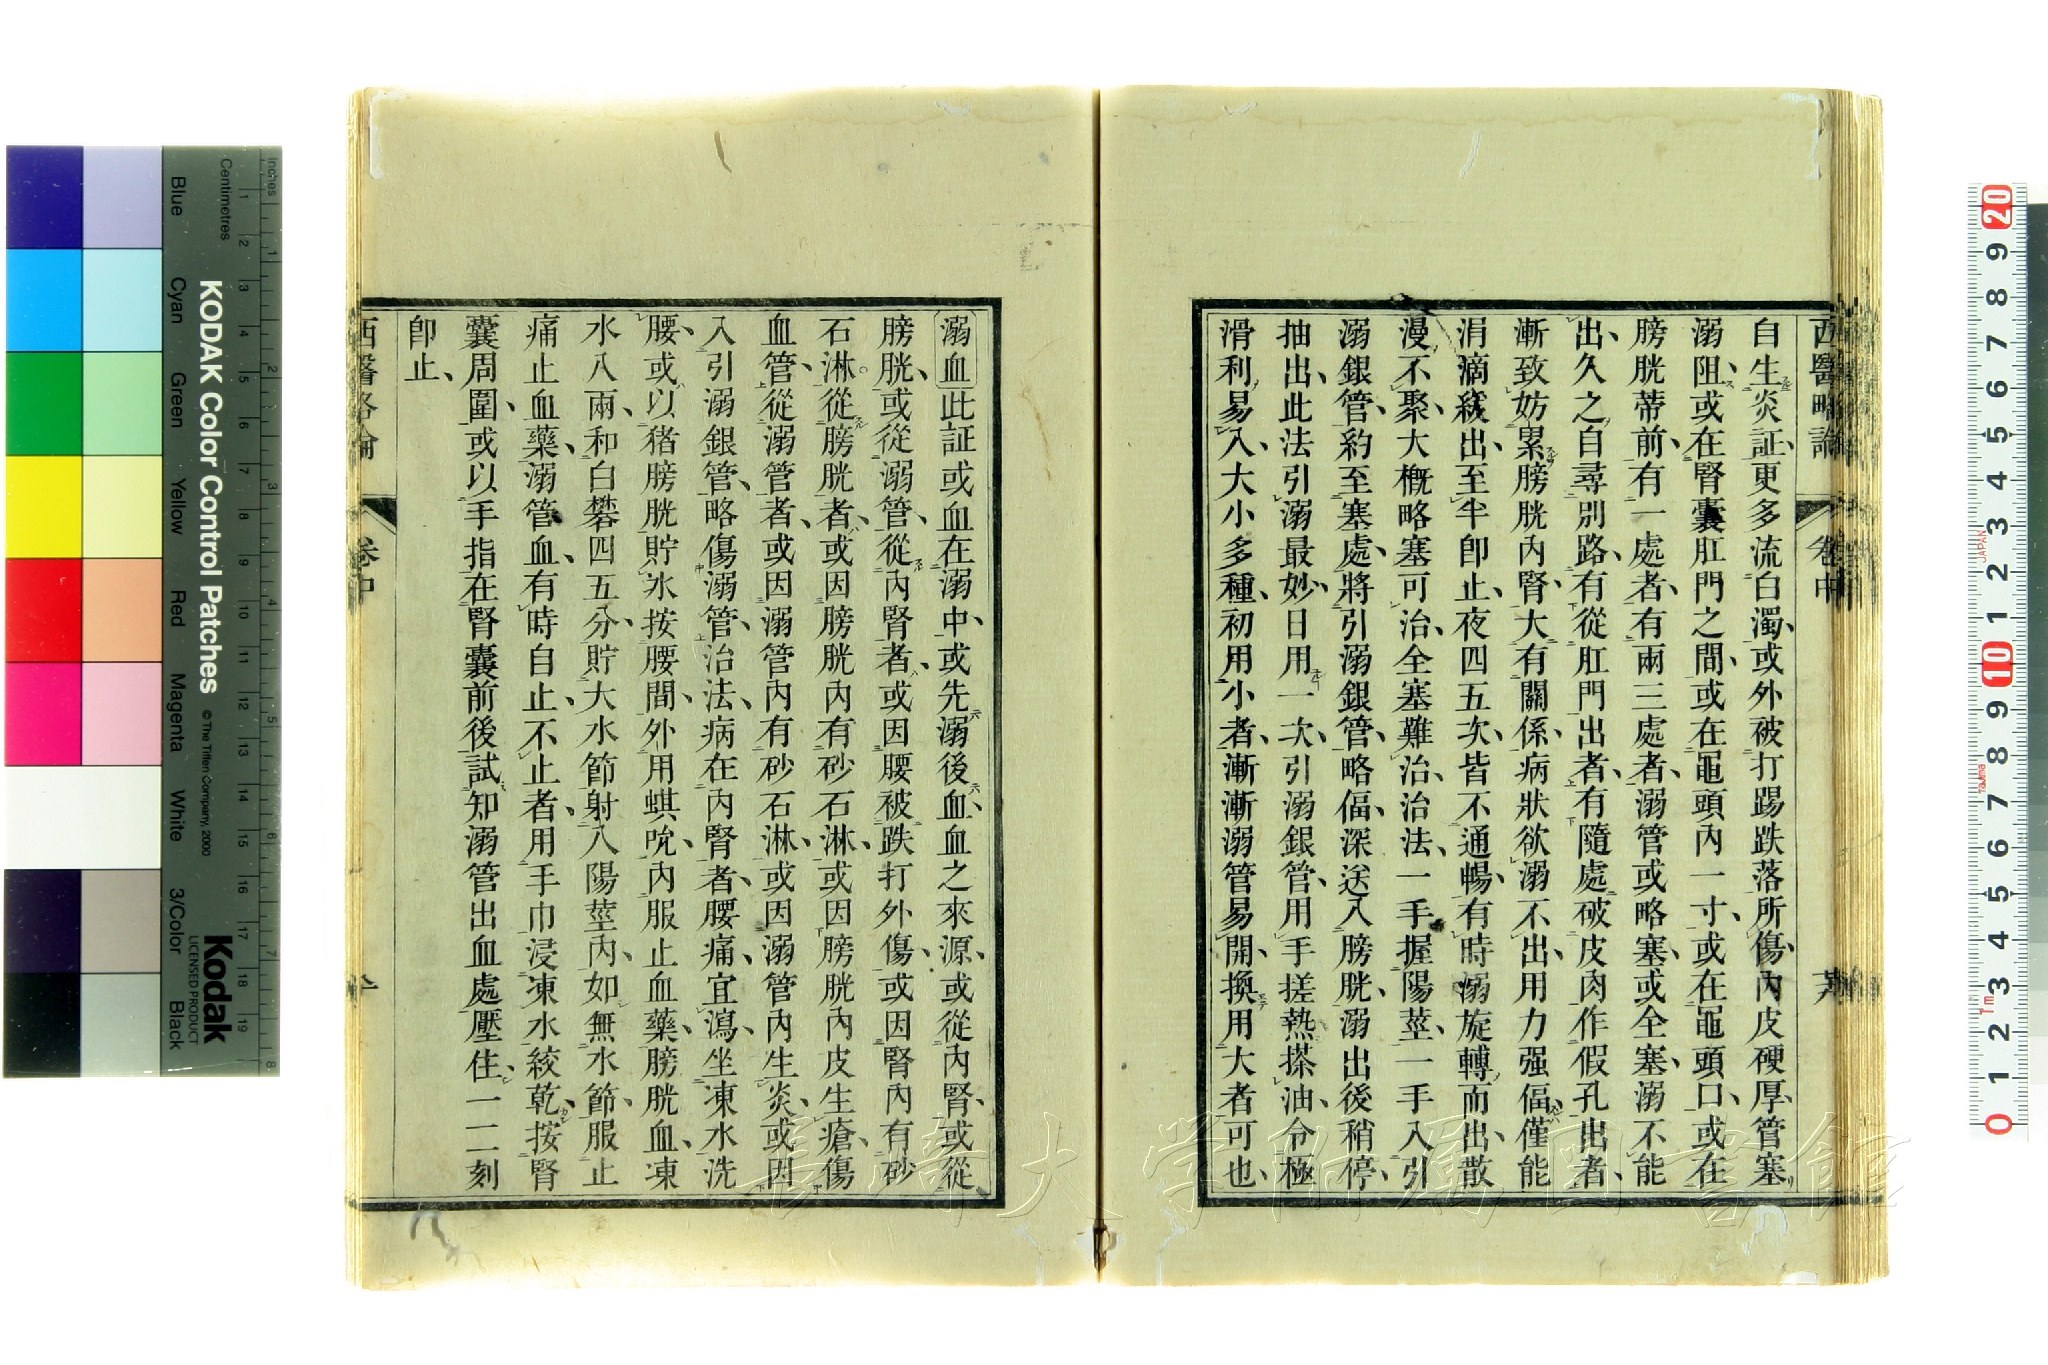 西醫略論
卷中
自生炎証、更多流白濁、或外被打踢跌落所傷、內皮硬厚、管塞
溺阻、或在腎囊肛門之間、或在龜頭內一寸、或在龜頭口、或在
膀胱蒂前、有一處者、有兩三處者、溺管或略塞、或全塞、溺不能
出、久之自尋別路、有從肛門出者、有隨處破皮肉作假孔出者、
漸致妨累膀胱內腎、大有關係、病狀欲溺不出、用力强偪、僅能
涓滴緩出、至半卽止、夜四五次、皆不通暢、有時溺旋轉而出、散
漫不聚、大槪略塞可治、全塞難治、治法、一手握陽莖、一手入引
溺銀管、約至塞處、將引溺銀管、略偪深送入膀胱、溺出後稍停、
抽出、此法引溺最妙、日用一次、引溺銀管、用手搓熱搽油、令極
滑利易入、大小多種、初用小者、漸漸溺管易開、換用大者可也、
溺血此証或血在溺中、或先溺後血、血之來源、或從內腎、或從
膀胱、或從溺管、從內腎者、或因腰被跌打外傷、或因腎內有砂
石淋、從膀胱者、或因膀胱內有砂石淋、或因膀胱內皮生瘡傷
血管、從溺管者、或因溺管內有砂石淋、或因溺管內生炎、或因
入引溺銀管、略傷溺管、治法、病在內腎者、腰痛、宜瀉、坐凍水洗
腰、或以猪膀胱貯氷按腰間、外用蜞吮、內服止血藥、膀胱血、凍
水八兩、和白礬四五分、貯大水節射入陽莖內、如無水節、服止
痛止血藥、溺管血、有時自止、不止者、用手巾浸凍水絞乾、按腎
囊周圍、或以手指在腎囊前後試知溺管出血處壓住、一二刻
卽止、
西醫略論
卷中
Inches
Centimetres
KODAK Color Control Patches
© The Tiffen Company, 2000
Kodak
LICENSED PRODUCT
Blue
Cyan
Green
Yellow
Red
Magenta
White
3/Color
Black
長崎大学附属図書館